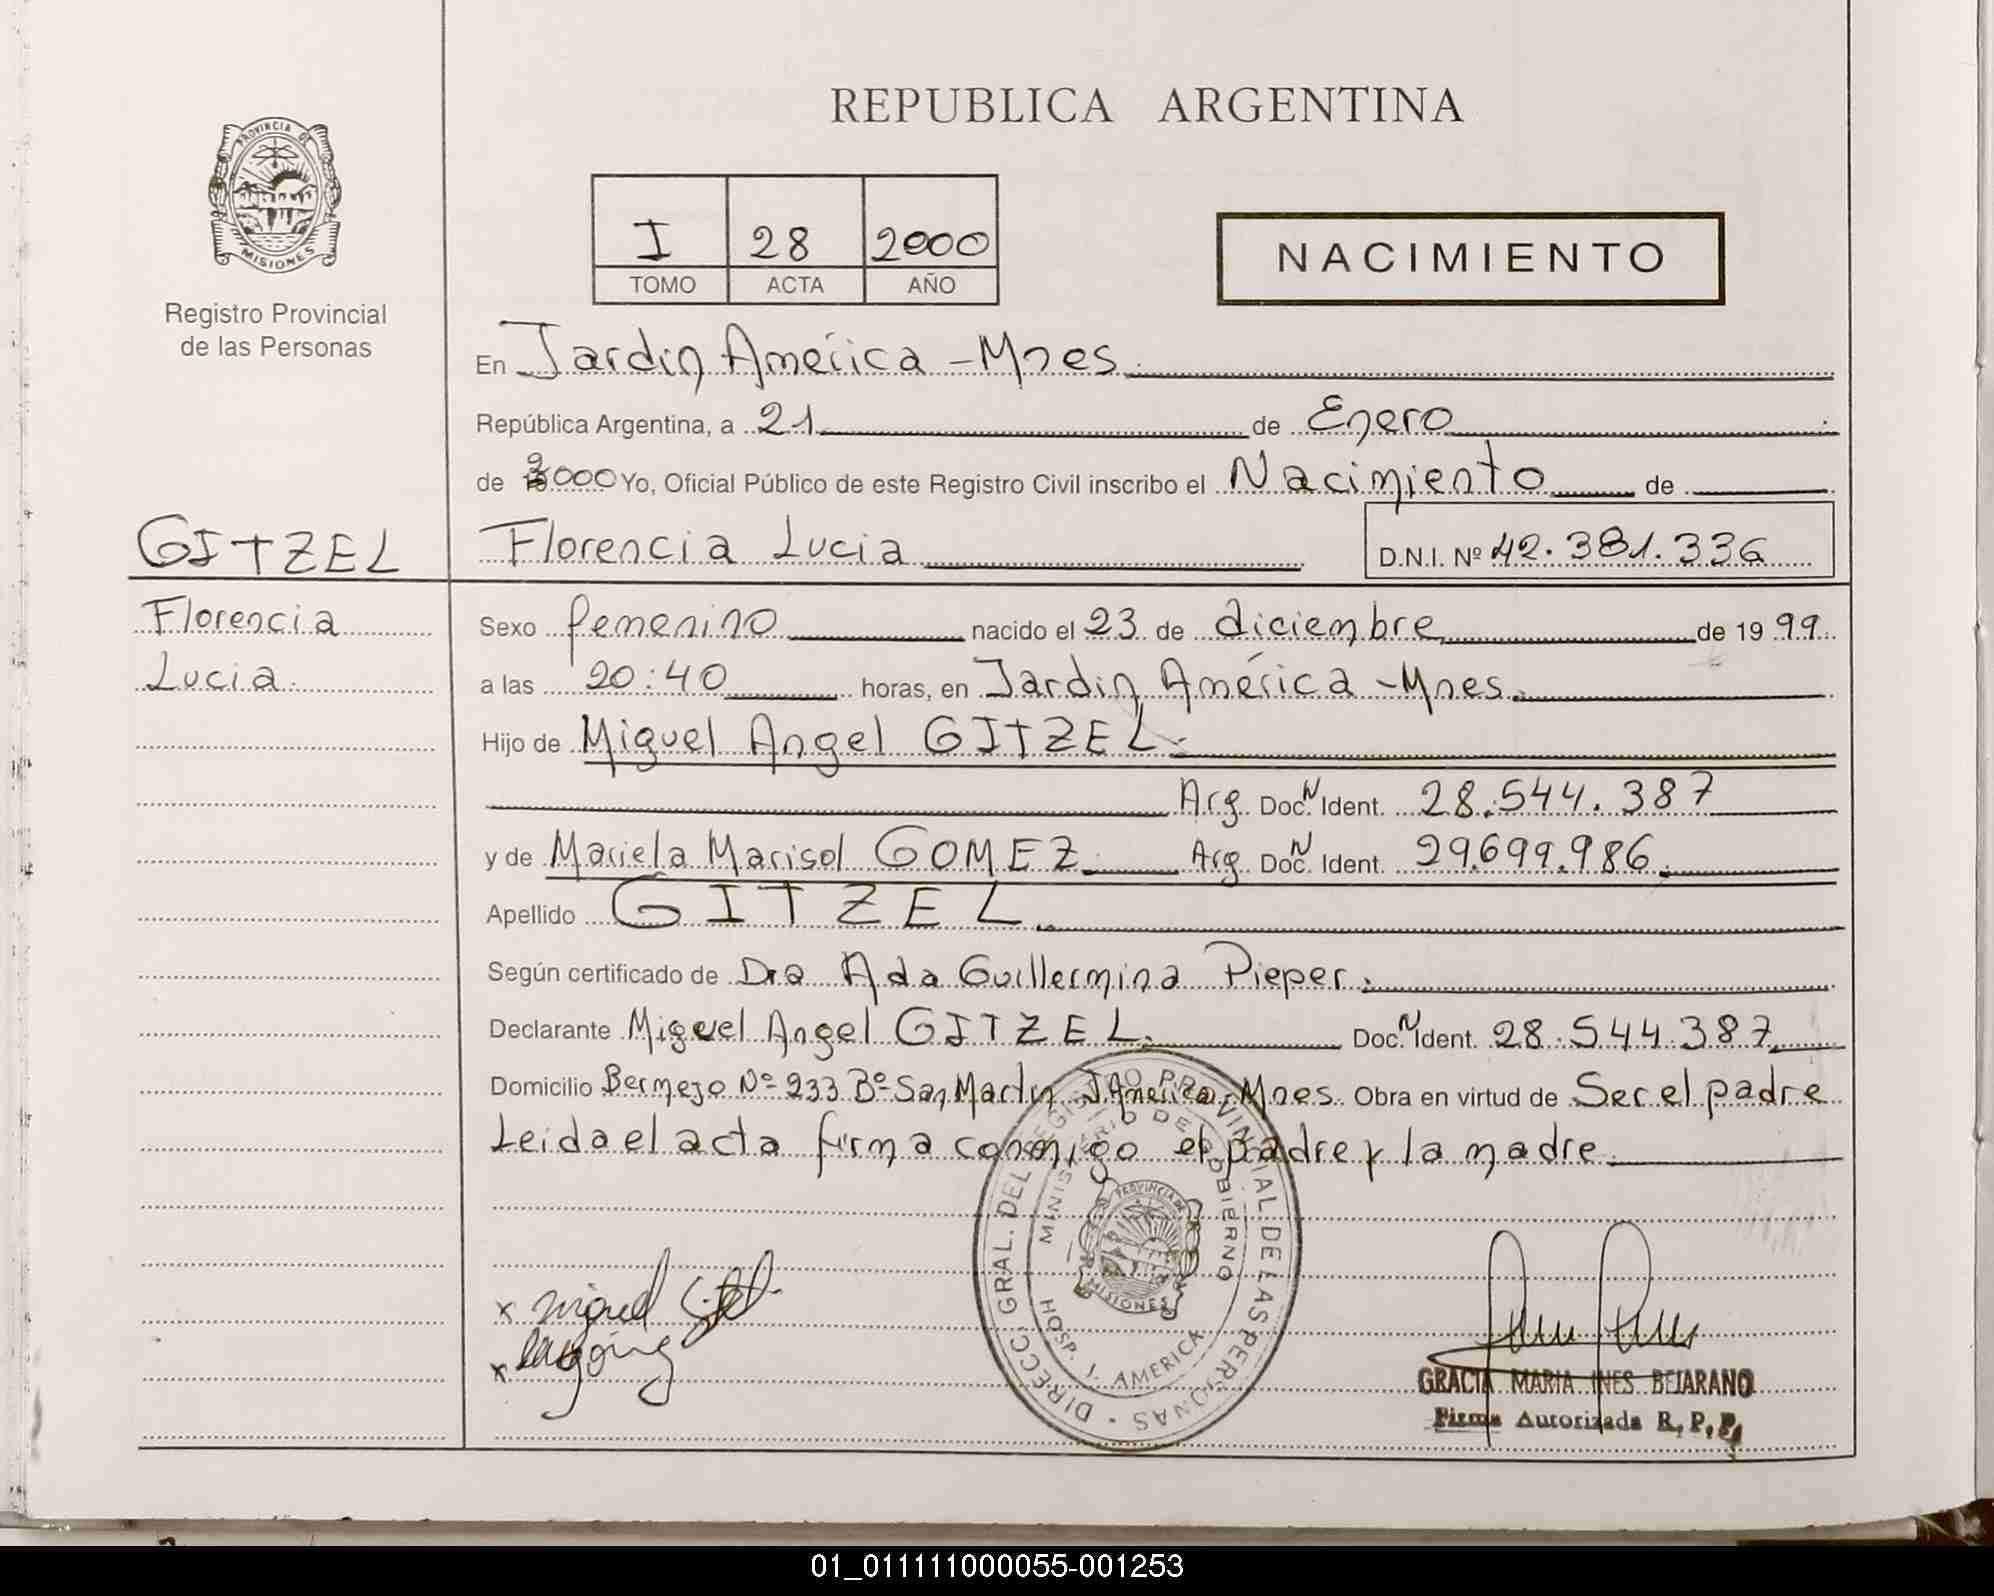 REPUBLICA ARGENTINA
PROVINCIA DE
MISIONES
Registro Provincial
de las Personas
I 28 2000
TOMO ACTA AÑO
NACIMIENTO
En Jardin América - Mnes.
República Argentina, a 21 de Enero
de 2000 Yo, Oficial Público de este Registro Civil inscribo el Nacimiento de
GITZEL
Florencia Lucia D.N.I. Nº 42.381.336
Florencia
Lucia.
Sexo femenino nacido el 23 de diciembre de 1999
a las 20:40 horas, en Jardin América - Mnes.
Hijo de Miguel Angel GITZEL.
Arg. Doc. N Ident. 28.544.387
y de Mariela Marisol GOMEZ. Arg. Doc. N Ident. 29.699.986.
Apellido GITZEL.
Según certificado de Dra Ada Guillermina Pieper.
Declarante Miguel Angel GITZEL. Doc. N Ident. 28.544.387
Domicilio Bermejo Nº 233 Bº San Martin J America - Mnes. Obra en virtud de Ser el padre
Leida el acta firma conmigo el padre y la madre.
DIRECC. GRAL. DEL REGISTRO PROVINCIAL DE LAS PERSONAS
MINISTERIO DE GOBIERNO
PROVINCIA DE
MISIONES
HOSP. J. AMERICA
x miguel Gitzel
x
GRACIA MARIA INES BEJARANO
Firma Autorizada R. P. P.
01_011111000055-001253